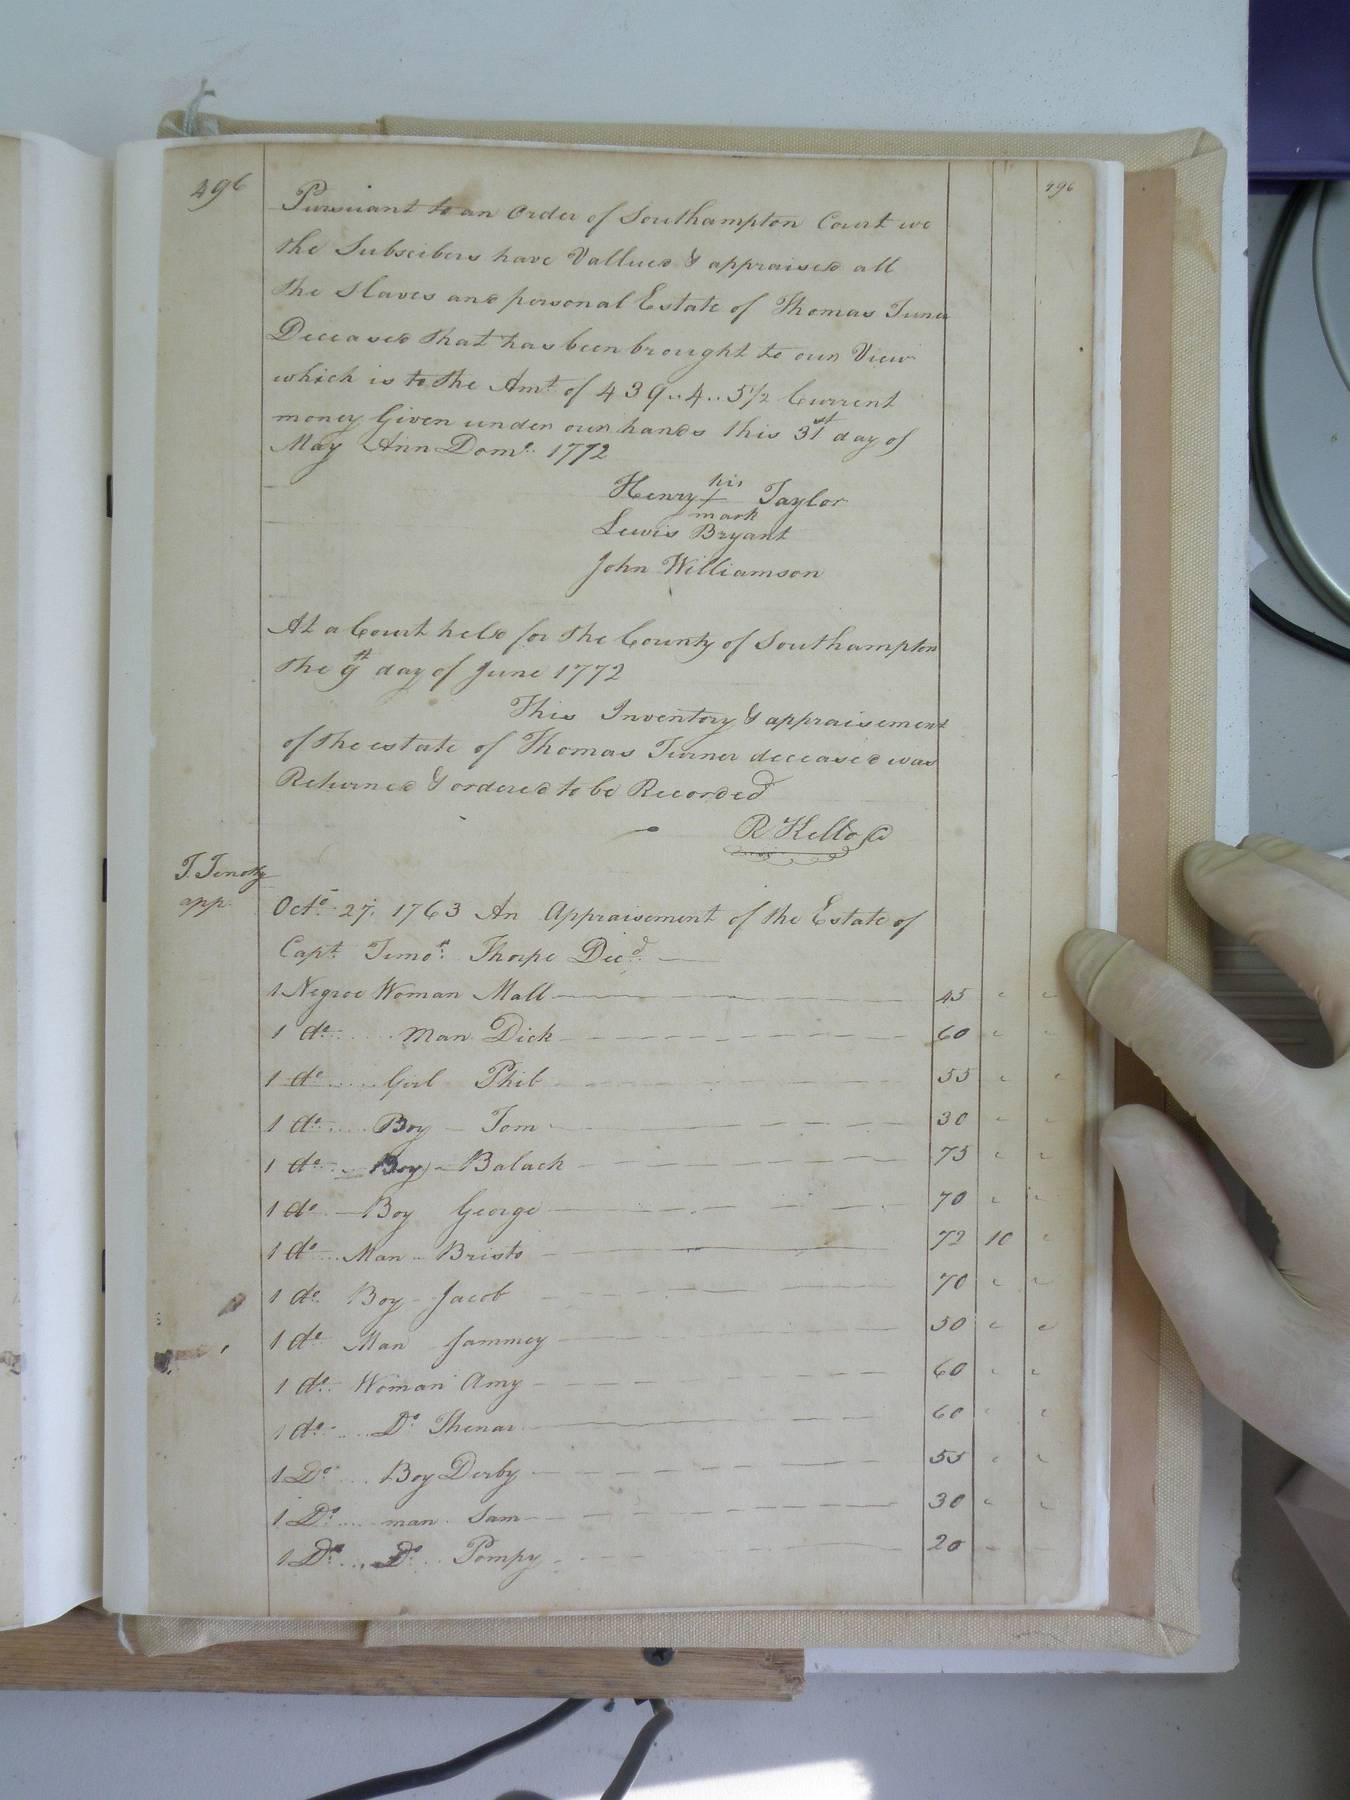 496
496
Pursuant to an Order of Southampton Court we
the Subscibers have Vallued & appraised all
the Slaves and personal Estate of Thomas Turner
Deceased that has been brought to our View
which is to the Amt. of 439..4..5½ Current
money Given under our hands this 31st day of
May Ann Domo. 1772
Henry his + mark Taylor
Lewis Bryant
John Williamson
At a Court held for the County of Southampton
the 9th day of June 1772
This Inventory & appraisement
of the estate of Thomas Turner deceased was
Returned & ordered to be Recorded
R Kello
app.
Octr. 27. 1763 An Appraisement of the Estate of
Capt. Timo. Thorpe Decd.
1 Negroe Woman Mall 45 " "
1 do. Man Dick 60 " "
1 do. Girl Phib 55 " "
1 do. Boy Tom 30 " "
1 do. Boy Balack 75 " "
1 do. Boy George 70 " "
1 do. Man Bristo 72 10 "
1 do. Boy Jacob 70 " "
1 do. Man Jammey 50 " "
1 do. Woman Amy 60 " "
1 do. Do. Thenar 60 " "
1 Do. Boy Derby 55 " "
1 Do. man Sam 30 " "
1 Do. Do. Pompy 20 " "